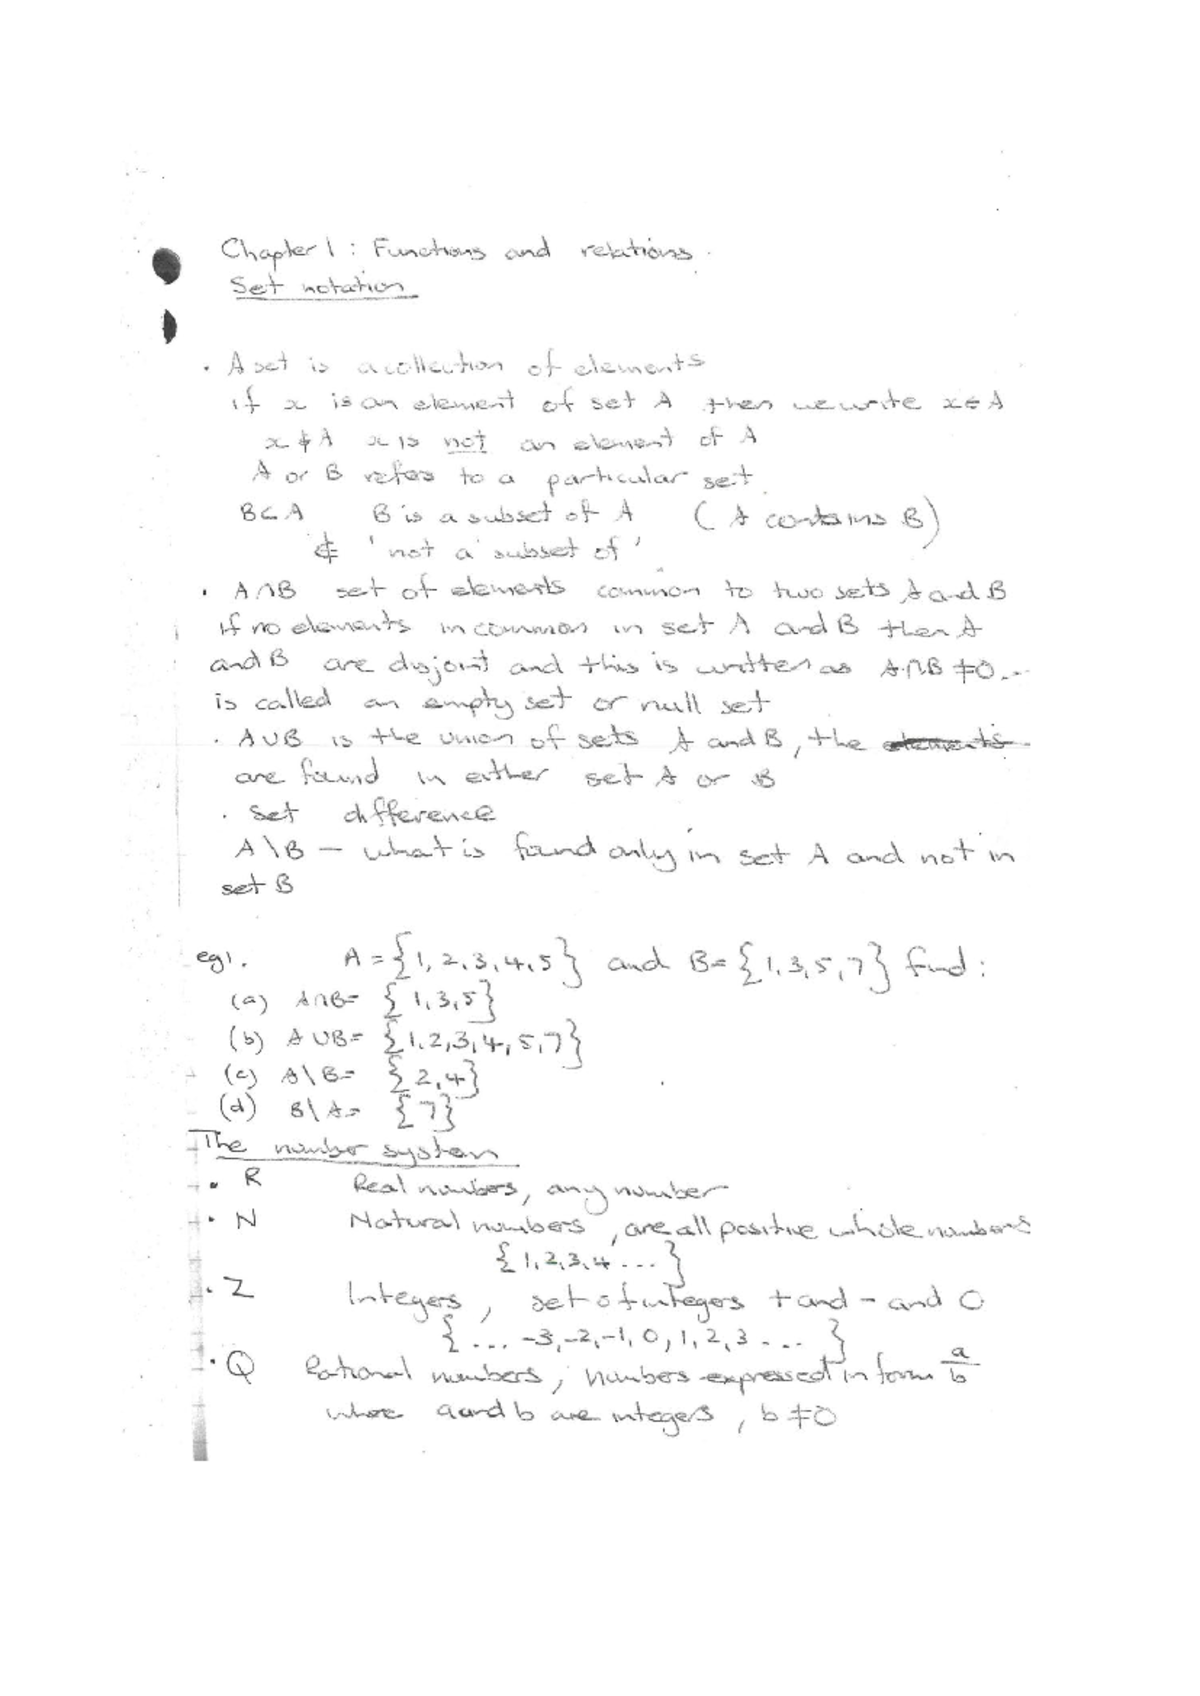 Chapter 1 : Functions and relations.
Set notation
· A set is a collection of elements
if x is an element of set A then we write x∈A
x∉A x is not an element of A
A or B refers to a particular set
B⊂A B is a subset of A ( A contains B)
⊄ 'not a subset of'
· A∩B set of elements common to two sets A and B
if no elements in common in set A and B then A
and B are disjoint and this is written as A∩B ≠0...
is called an empty set or null set
· A∪B is the union of sets A and B, the elements
are found in either set A or B
· set difference
A\B — what is found only in set A and not in
set B
eg1. A = {1, 2, 3, 4, 5} and B= {1, 3, 5, 7} find :
(a) A∩B= {1, 3, 5}
(b) A∪B= {1, 2, 3, 4, 5, 7}
(c) A\B= {2, 4}
(d) B\A= {7}
The number system
· R Real numbers, any number
· N Natural numbers, are all positive whole numbers
{1, 2, 3, 4 ... }
· Z Integers, set of integers + and - and 0
{ ... -3, -2, -1, 0, 1, 2, 3 ... }
· Q Rational numbers, numbers expressed in form a/b
where a and b are integers, b ≠0